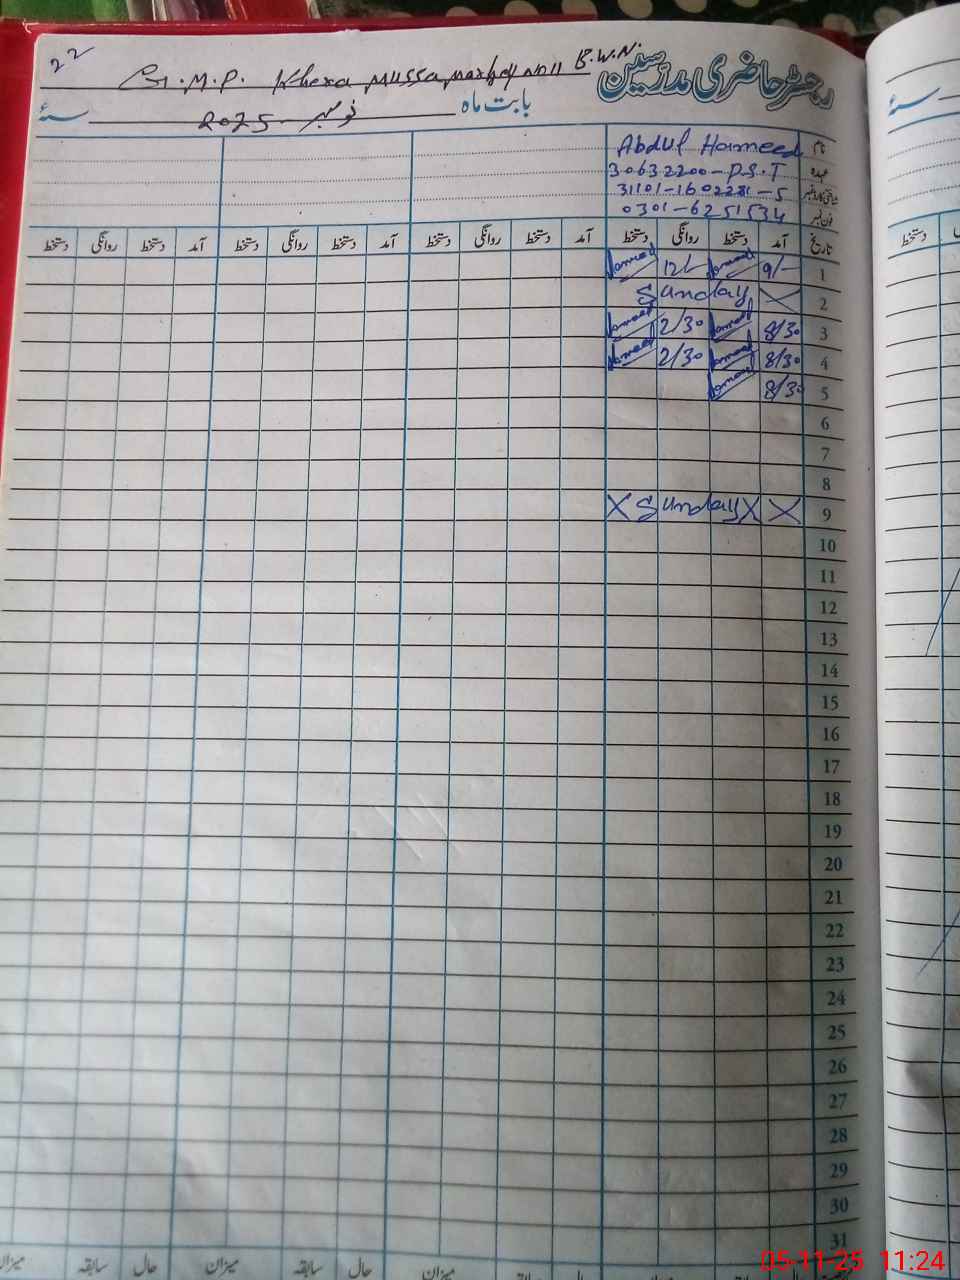 22
G.M.P. Khera Mussa B.W.N.
رجسٹر حاضری مدرسین
بابت ماہ نومبر 2025 سنۂ
نام Abdul Hameed
عہدہ 30632200-P.S.T
شناختی کارڈ نمبر 31101-1602281-5
فون نمبر 0301-6251534
تاریخ آمد دستخط روانگی دستخط آمد دستخط روانگی دستخط آمد دستخط روانگی دستخط آمد دستخط روانگی دستخط
1 9/- Hameed 12/- Hameed
2 Sunday
3 8/30 Hameed 2/30 Hameed
4 8/30 Hameed 2/30 Hameed
5 8/30 Hameed
6
7
8
9 X Sunday X X
10
11
12
13
14
15
16
17
18
19
20
21
22
23
24
25
26
27
28
29
30
31
میزان حال سابقہ میزان حال سابقہ میزان
05-11-25 11:24
دستخط
سنۂ